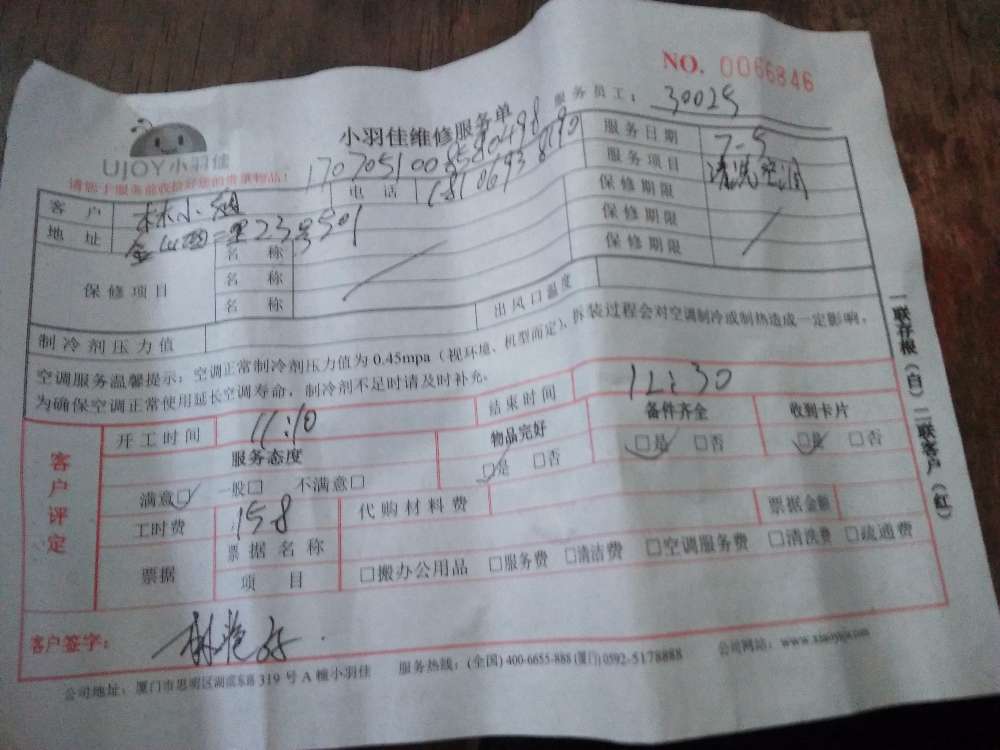 NO. 0066846
服务员工： 30025
小羽佳维修服务单
UJOY小羽佳
请您于服务前收拾好您的贵重物品！
服务日期 7-5
服务项目 清洗空调
客户 林小姐 电话
地址 23号501
保修项目
名称 保修期限
名称 保修期限
名称 保修期限
制冷剂压力值 出风口温度
空调服务温馨提示：空调正常制冷剂压力值为0.45mpa（视环境、机型而定），拆装过程会对空调制冷或制热造成一定影响，
为确保空调正常使用延长空调寿命，制冷剂不足时请及时补充。
一联存根（白）二联客户（红）
客户评定
开工时间 11:10 结束时间 12:30
服务态度 物品完好 备件齐全 收到卡片
满意□ 一般□ 不满意□ □是 □否 □是 □否 □是 □否
工时费 158 代购材料费 票据金额
票据 票据名称
项目 □搬办公用品 □服务费 □清洁费 □空调服务费 □清洗费 □疏通费
客户签字：
公司地址：厦门市思明区湖滨东路319号A幢小羽佳 服务热线：(全国) 400-6655-888 (厦门) 0592-5178888 公司网站：www.xiaoyujia.com